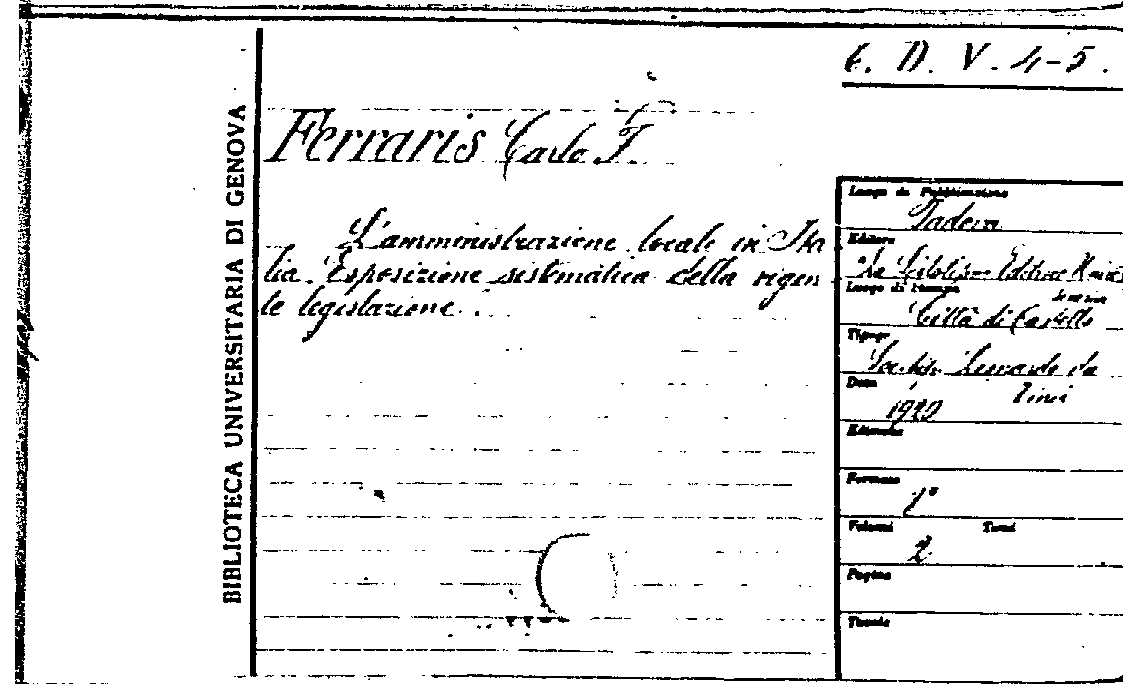 6. D. V. 4-5.
BIBLIOTECA UNIVERSITARIA DI GENOVA
Ferraris Carlo F.
L'amministrazione locale in Ita
lia. Esposizione sistematica della vigen
te legislazione.
Luogo di Pubblicazione
Padova
Editore
"La Litotipo" Editrice
Luogo di stampa
Città di Castello
Tipogr.
Leonardo da
Vinci
Data
1920
Formato
Volumi Tomi
2
Pagine
Tavole